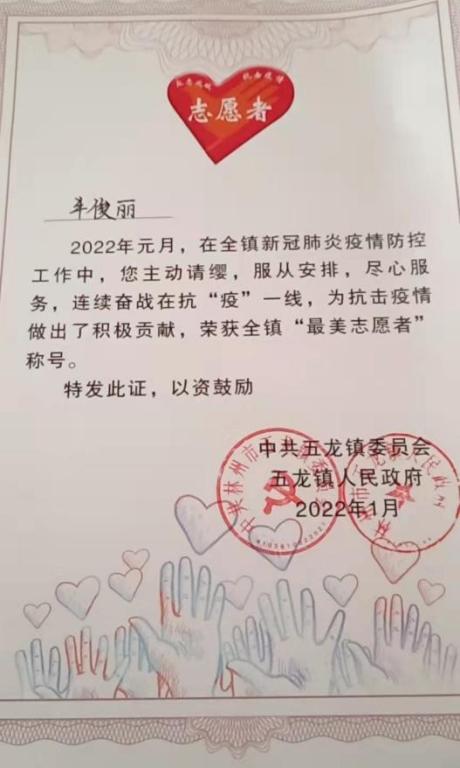 志愿者
辛俊丽
2022年元月，在全镇新冠肺炎疫情防控
工作中，您主动请缨，服从安排，尽心服
务，连续奋战在抗“疫”一线，为抗击疫情
做出了积极贡献，荣获全镇“最美志愿者”
称号。
特发此证，以资鼓励
中共五龙镇委员会
五龙镇人民政府
2022年1月